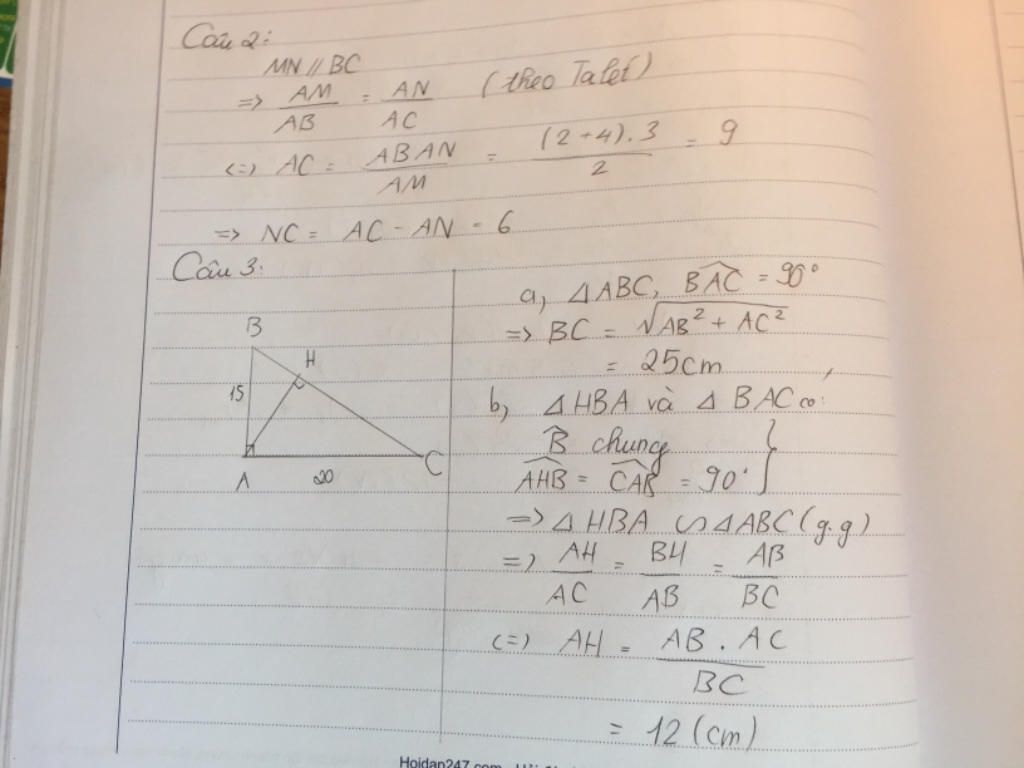 Câu 2:
MN // BC
=> AM/AB = AN/AC (theo Talet)
<=> AC = ABAN/AM = (2+4).3/2 = 9
=> NC = AC - AN = 6
Câu 3:
B
H
15
A
20
C
a, △ABC, BAC = 90°
=> BC = √AB² + AC²
= 25cm
b, △HBA và △BAC có:
B chung
AHB = CAB = 90° }
=> △HBA ∽ △ABC (g.g)
=> AH/AC = BH/AB = AB/BC
<=> AH = AB . AC/BC
= 12 (cm)
Hoidap247.com